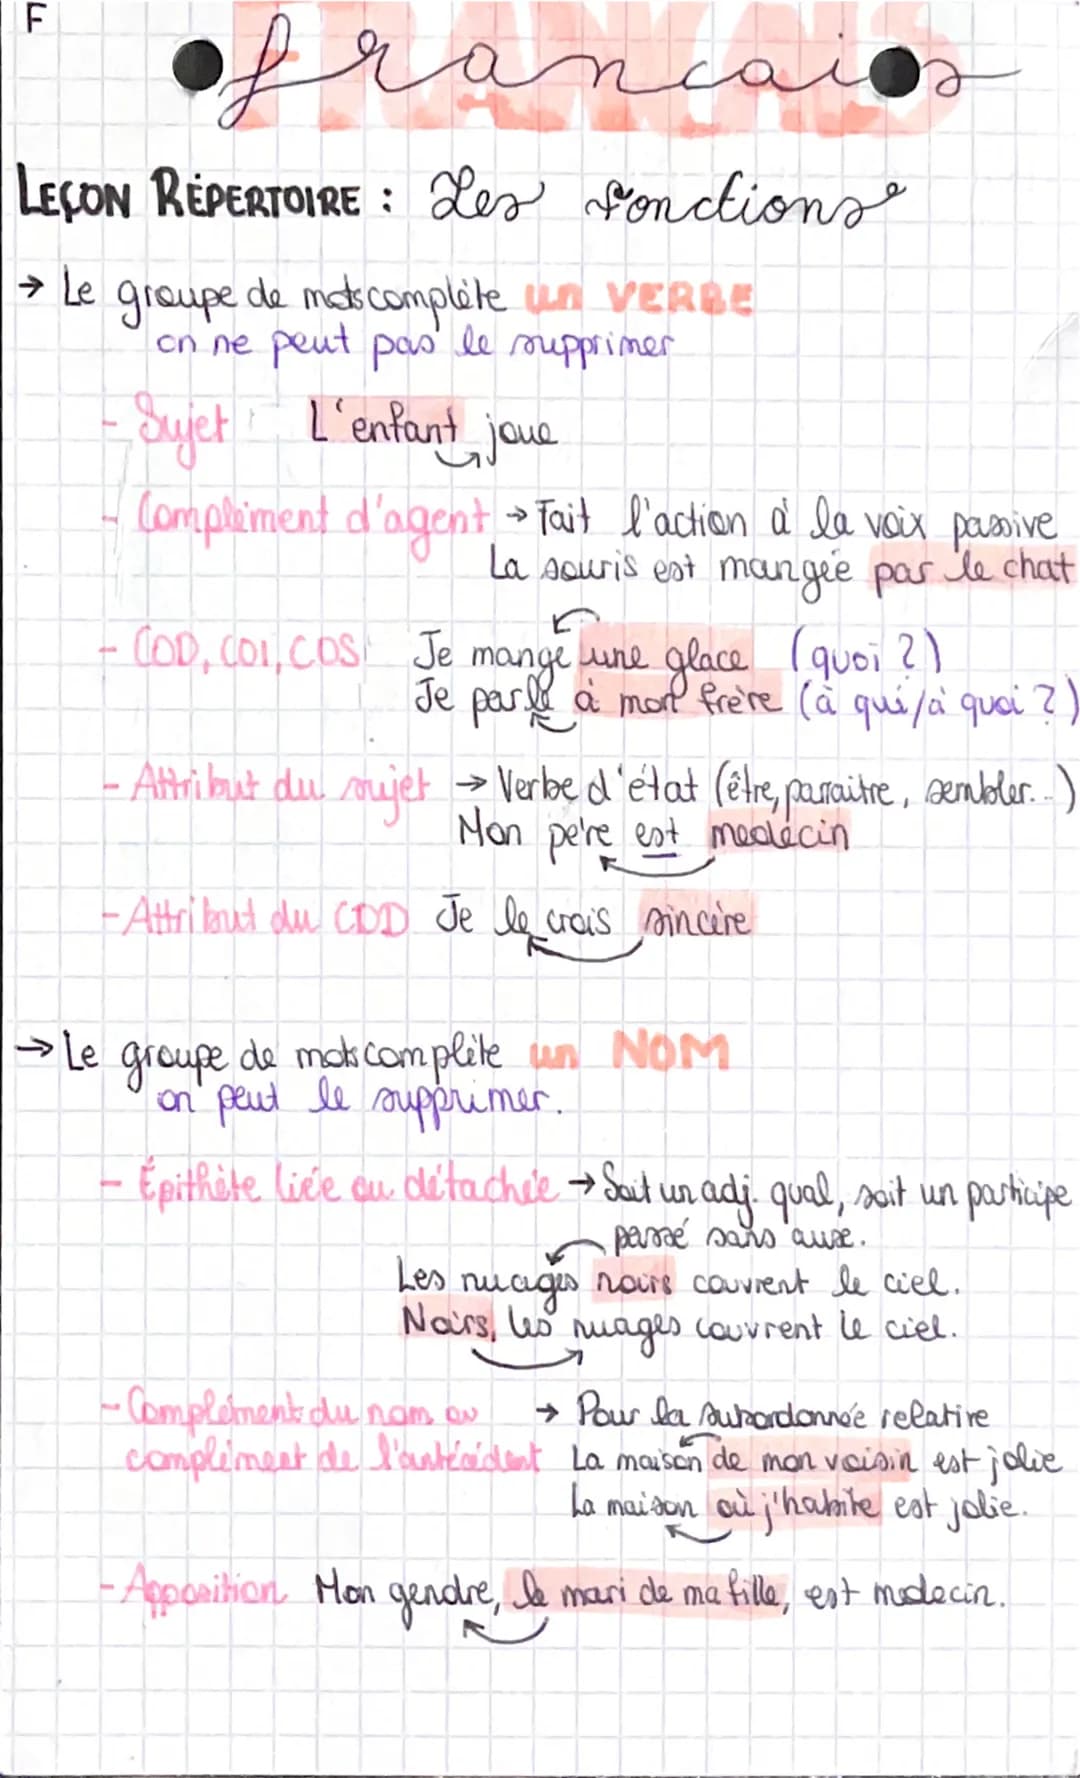 F
FRANCAIS
francais
LEÇON RÉPERTOIRE : Les fonctions
→ Le groupe de mots complète un VERBE
on ne peut pas le supprimer
- Sujet L'enfant joue
- Complément d'agent → Fait l'action à la voix passive
La souris est mangée par le chat
- COD, COI, COS Je mange une glace (quoi ?)
Je parle à mon frère (à qui/à quoi ?)
- Attribut du sujet → Verbe d'état (être, parraitre, sembler...)
Mon père est medecin
- Attribut du COD Je le crois sincère
→ Le groupe de mots complète un NOM
on peut le supprimer.
- Épithète liée ou détachée → Soit un adj. qual, soit un participe
passé sans auxe.
Les nuages noirs couvrent le ciel.
Noirs, les nuages couvrent le ciel.
- Complément du nom ou → Pour la subordonnée relative
complément de l'antécédent La maison de mon voisin est jolie
La maison où j'habite est jolie.
- Apposition Mon gendre, le mari de ma fille, est medecin.